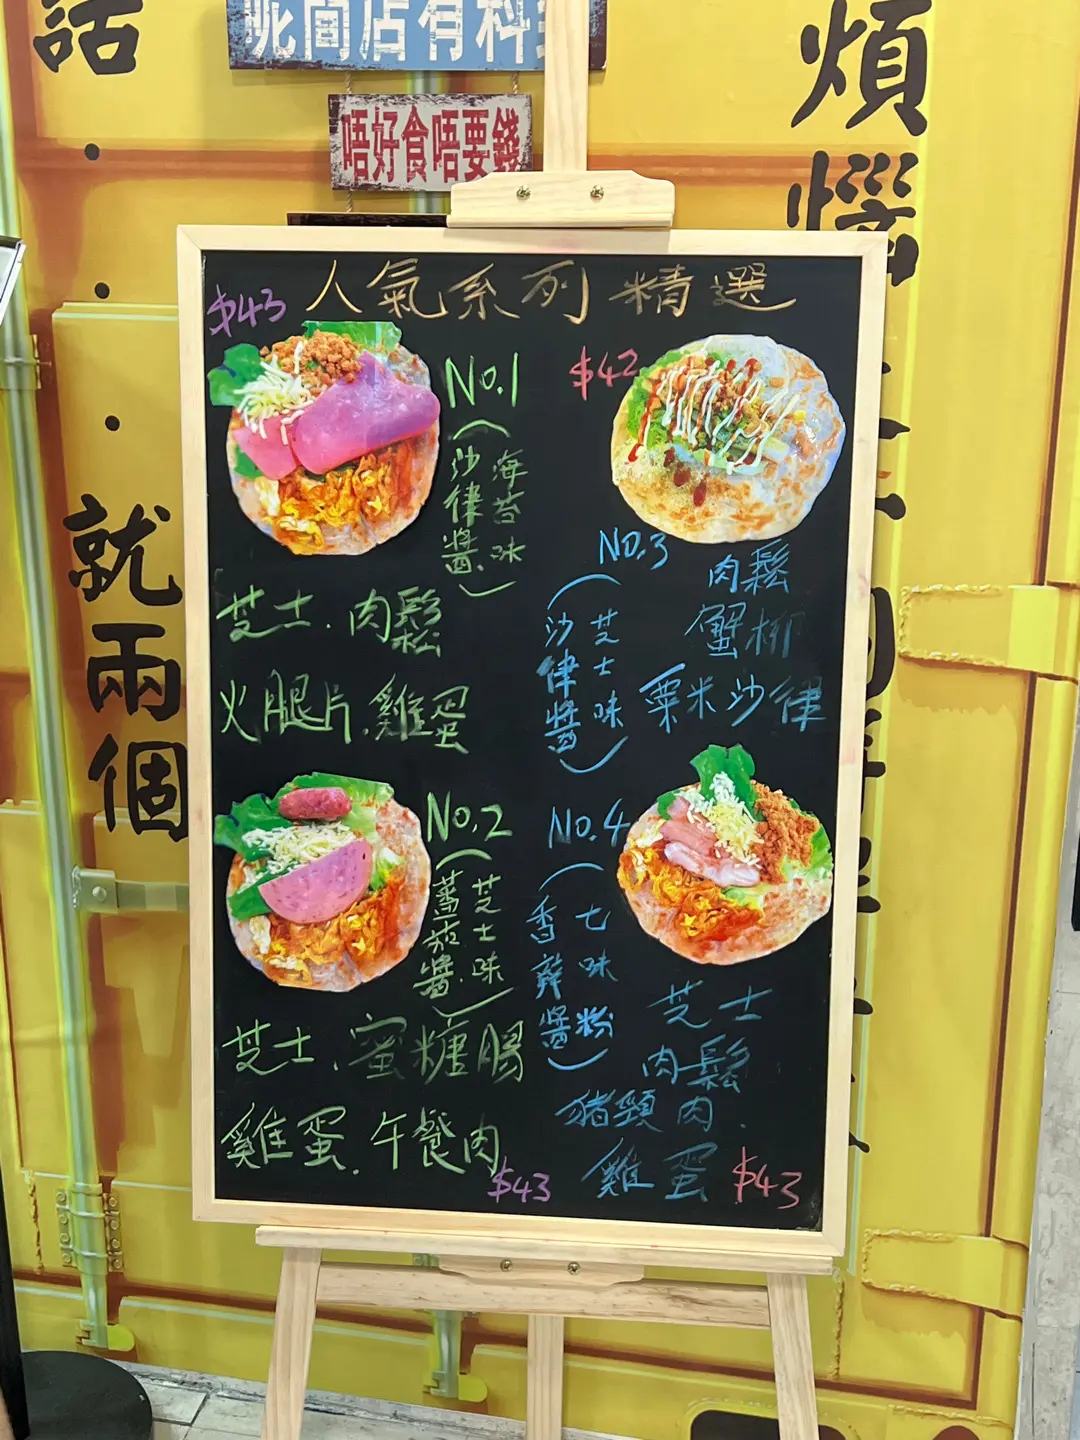 話
煩
惱
就
兩
個
呢間店有料
唔好食唔要錢
人氣系列精選
$43
No.1
(海苔味
沙律醬)
芝士.肉鬆
火腿片.雞蛋
No.2
(芝士味
蕃茄醬)
芝士.蜜糖腸
雞蛋.午餐肉
$43
$42
No.3
(芝士味
沙律醬)
肉鬆
蟹柳
粟米沙律
No.4
(七味粉
香辣醬)
芝士
肉鬆
豬頸肉.
雞蛋
$43